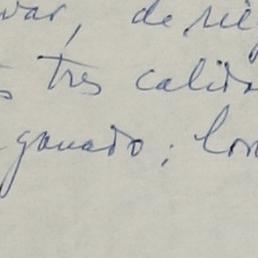 var, de rie
s tres calida
ganado; Con